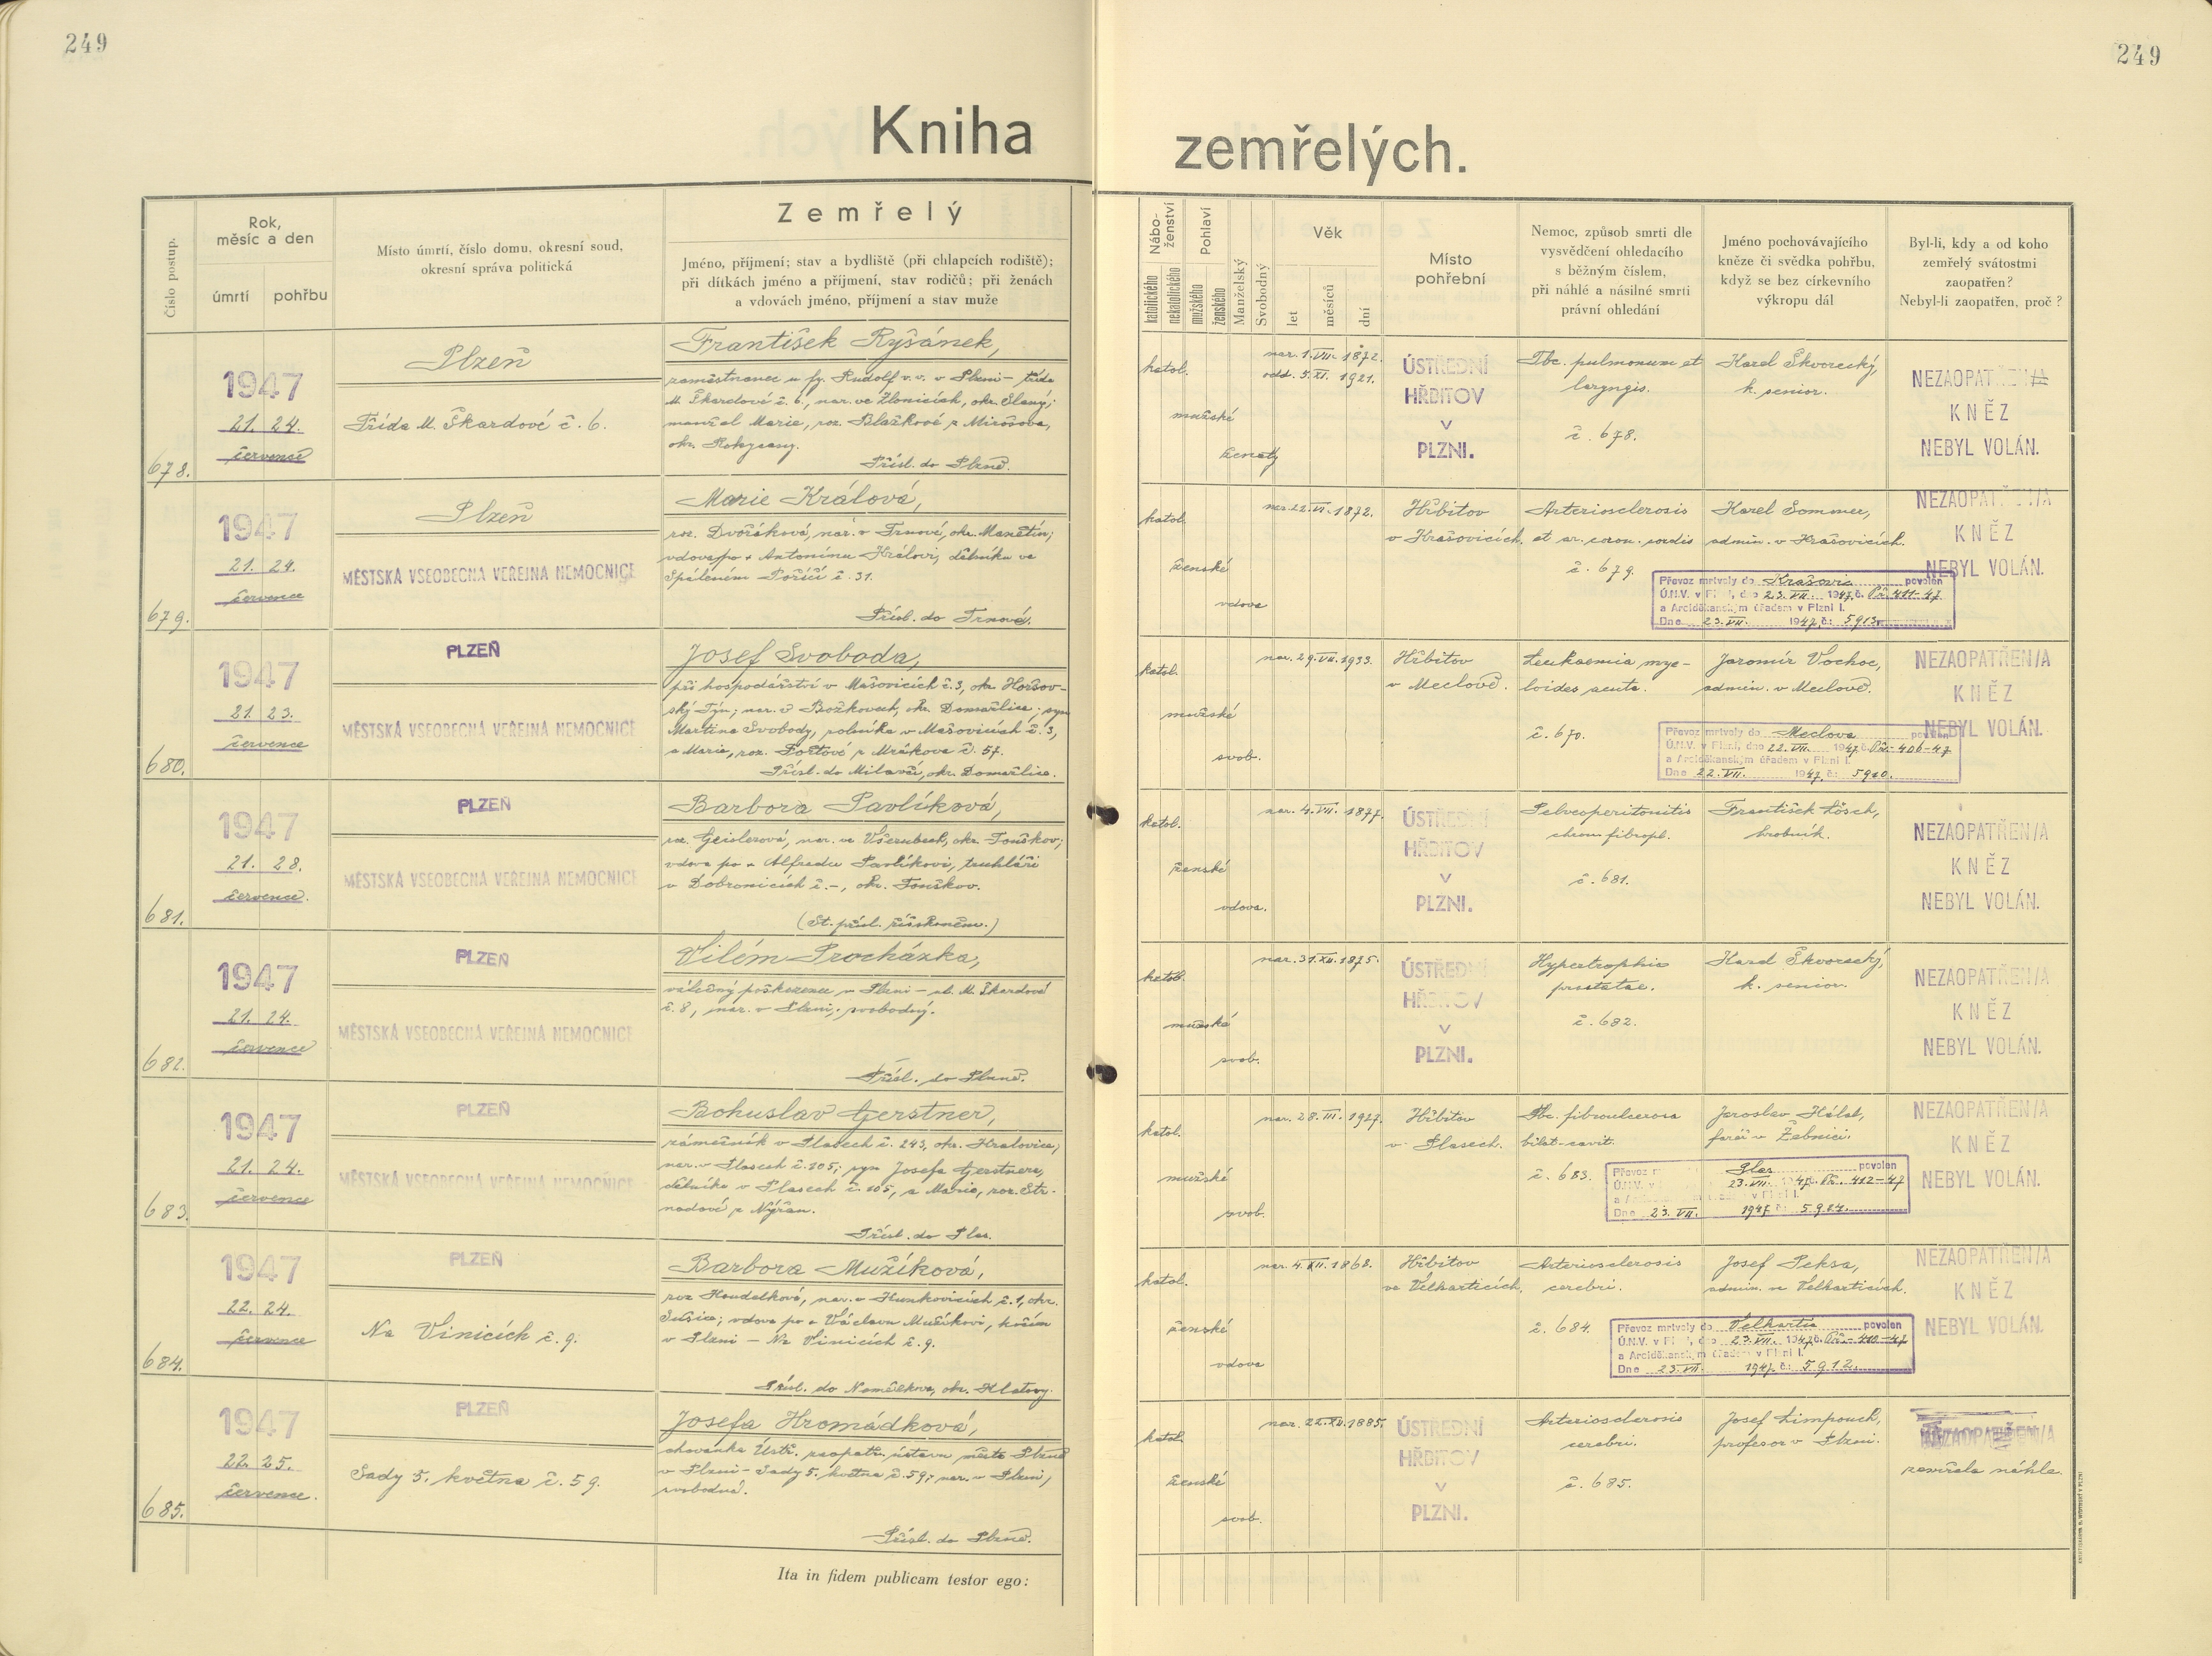 249
249
Kniha
zemřelých.
Číslo postup.
Rok, měsíc a den
úmrtí
pohřbu
Místo úmrtí, číslo domu, okresní soud, okresní správa politická
Zemřelý
Jméno, příjmení; stav a bydliště (při chlapcích rodiště);
při dítkách jméno a příjmení, stav rodičů; při ženách
a vdovách jméno, příjmení a stav muže
Nábo-
ženství
katolického
nekatolického
Pohlaví
mužského
ženského
Manželský
Svobodný
Věk
let
měsíců
dní
Místo
pohřební
Nemoc, způsob smrti dle
vysvědčení ohledacího
s běžným číslem,
při náhlé a násilné smrti
právní ohledání
Jméno pochovávajícího
kněze či svědka pohřbu,
když se bez církevního
výkropu dál
Byl-li, kdy a od koho
zemřelý svátostmi
zaopatřen?
Nebyl-li zaopatřen, proč?
678.
1947
21. 24.
července
Plzeň
Třída M. Škardové č. 6.
František Ryšánek,
zaměstnanec u fy. Rudolf v. v. v Plzni – třída
M. Škardové č. 6, nar. ve Zlonicích, okr. Slaný;
manžel Marie, roz. Blažkové z Mirošova,
okr. Rokycany.
Přísl. do Plzně.
katol.
mužské
ženatý
nar. 1. VII. 1872.
odd. 5. XI. 1921.
ÚSTŘEDNÍ
HŘBITOV
V
PLZNI.
Tbc. pulmonum et
laryngis.
č. 678.
Karel Škvorecký,
k. senior.
NEZAOPATŘEN/A
KNĚZ
NEBYL VOLÁN.
679.
1947
21. 24.
července
Plzeň
MĚSTSKÁ VŠEOBECNÁ VEŘEJNÁ NEMOCNICE
Marie Králová,
roz. Dvořáková, nar. v Trnové, okr. Manětín;
vdova po + Antonínu Královi, dělníku ve
Spáleném Poříčí č. 31.
Přísl. do Trnové.
katol.
ženské
vdova
nar. 22. VI. 1872.
Hřbitov
v Krašovicích.
Arteriosclerosis
et ar. coron. cordis
č. 679.
Karel Sommer,
admin. v Krašovicích.
NEZAOPATŘEN/A
KNĚZ
NEBYL VOLÁN.
Převoz mrtvoly do Krašovic povolen
Ú.N.V. v Plzni, dne 23. VII. 1947, č. Př. 411-47
a Arciděkanským úřadem v Plzni I.
Dne 23. VII. 1947, č: 5913.
680.
1947
21. 23.
července
PLZEŇ
MĚSTSKÁ VŠEOBECNÁ VEŘEJNÁ NEMOCNICE
Josef Svoboda,
při hospodářství v Mašovicích č. 3, okr. Horšov-
ský Týn; nar. v Božkovech, okr. Domažlice; syn
Martina Svobody, rolníka v Mašovicích č. 3,
a Marie, roz. Poštové z Mrákova č. 57.
Přísl. do Milavčí, okr. Domažlice.
katol.
mužské
svob.
nar. 29. VII. 1933.
Hřbitov
v Meclově.
Leukaemia mye-
loides acuta.
č. 670.
Jaromír Vochoc,
admin. v Meclově.
NEZAOPATŘEN/A
KNĚZ
NEBYL VOLÁN.
Převoz mrtvoly do Meclova povolen
Ú.N.V. v Plzni, dne 22. VII. 1947, č. Př.- 406-47
a Arciděkanským úřadem v Plzni I.
Dne 22. VII. 1947, č: 5910.
681.
1947
21. 28.
července.
PLZEŇ
MĚSTSKÁ VŠEOBECNÁ VEŘEJNÁ NEMOCNICE
Barbora Pavlíková,
roz. Geislerová, nar. ve Všerubech, okr. Touškov;
vdova po + Alfredu Pavlíkovi, truhláři
v Dobronicích č. –, okr. Touškov.
(St. přísl. říškoněm.)
katol.
ženské
vdova.
nar. 4. VII. 1877.
ÚSTŘEDNÍ
HŘBITOV
V
PLZNI.
Pelveoperitonitis
chron. fibropl.
č. 681.
František Lösch,
hrobník.
NEZAOPATŘEN/A
KNĚZ
NEBYL VOLÁN.
682.
1947
21. 24.
července
PLZEŇ
MĚSTSKÁ VŠEOBECNÁ VEŘEJNÁ NEMOCNICE
Vilém Procházka,
válečný poškozenec v Plzni – ul. M. Škardové
č. 8, nar. v Plzni, svobodný.
Přísl. do Plzně.
katol.
mužské
svob.
nar. 31. XII. 1875.
ÚSTŘEDNÍ
HŘBITOV
V
PLZNI.
Hypertrophia
prostatae.
č. 682.
Karel Škvorecký,
k. senior.
NEZAOPATŘEN/A
KNĚZ
NEBYL VOLÁN.
683.
1947
21. 24.
července
PLZEŇ
MĚSTSKÁ VŠEOBECNÁ VEŘEJNÁ NEMOCNICE
Bohuslav Gerstner,
zámečník v Plasech č. 243, okr. Kralovice,
nar. v Plasech č. 105; syn Josefa Gerstnera,
dělníka v Plasech č. 105, a Marie, roz. Str-
nadové z Nýřan.
Přísl. do Plas.
katol.
mužské
svob.
nar. 28. III. 1927.
Hřbitov
v Plasech.
Tbc. fibroulcerosa
bilat-cavit.
č. 683.
Jaroslav Hálek,
farář v Žebnici.
NEZAOPATŘEN/A
KNĚZ
NEBYL VOLÁN.
Převoz Plas povolen
Ú.N.V. 23. VII. 1947, č. Př. 412-47
Dne 23. VII. 1947, č: 5914.
684.
1947
22. 24.
července
PLZEŇ
Na Vinicích č. 9.
Barbora Mužíková,
roz. Koudelková, nar. v Hunkovicích č. 1, okr.
Sušice; vdova po + Václavu Mužíkovi,
v Plzni – Na Vinicích č. 9.
Přísl. do Nemilkova, okr. Klatovy.
katol.
ženské
vdova
nar. 4. XII. 1868.
Hřbitov
ve Velharticích.
Arteriosclerosis
cerebri.
č. 684.
Josef Peksa,
admin. ve Velharticích.
NEZAOPATŘEN/A
KNĚZ
NEBYL VOLÁN.
Převoz mrtvoly do Velhartic povolen
Ú.N.V. v Plzni, dne 23. VII. 1947, č. Př.- 410-47
a Arciděkanským úřadem v Plzni I.
Dne 23. VII. 1947, č: 5912.
685.
1947
22. 25.
července.
PLZEŇ
Sady 5. května č. 59.
Josefa Hromádková,
chovanka Ústř. zaopatř. ústavu města Plzně
v Plzni – Sady 5. května č. 59, nar. v Plzni,
svobodná.
Přísl. do Plzně.
katol.
ženské
svob.
nar. 22. XII. 1885.
ÚSTŘEDNÍ
HŘBITOV
V
PLZNI.
Arteriosclerosis
cerebri.
č. 685.
Josef Limpouch,
profesor v Plzni.
NEZAOPATŘEN/A
zemřela náhle.
Ita in fidem publicam testor ego: